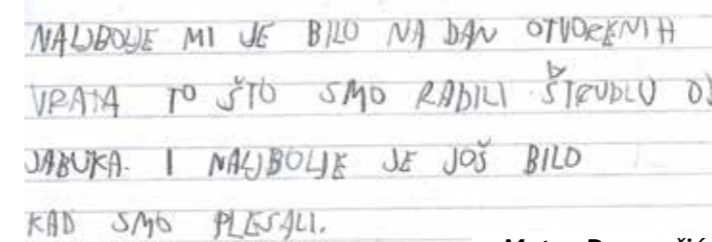 NAJBOLJE MI JE BILO NA DAN OTVORENIH
VRATA TO ŠTO SMO RADILI ŠTRUDLU OD
JABUKA. I NAJBOLJE JE JOŠ BILO
KAD SMO PLESALI.